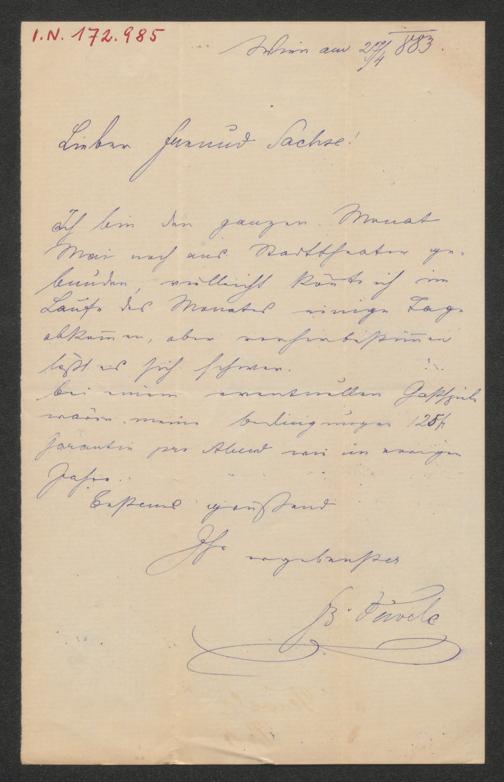 I.N. 172.985
Wien am 25/4 883.
Lieber Freund Sachse!
Ich bin den ganzen Monat
Mai noch ans Stadttheater ge-
bunden, vielleicht könnte ich im
Laufe des Monates einige Tage
abkommen, aber vorherbestimmen
läßt es sich schwer.
bei einem eventuellen Gastspiele
wären meine bedingungen 125 fl
Garantie pro Abend wie im vorigen
Jahre.
Bestens grüßend
Ihr ergebenster